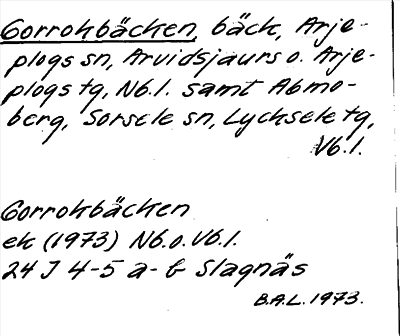 Gorrokbäcken, bäck, Arje-
plogs sn, Arvidsjaurs o. Arje-
plogs tg, Nb.l. samt Abmo-
berg, Sorsele sn, Lycksele tg,
Vb.l.
Gorrokbäcken
ek (1973) Nb.o.Vb.l.
24 J 4-5 a-b Slagnäs
B.A.L. 1973.